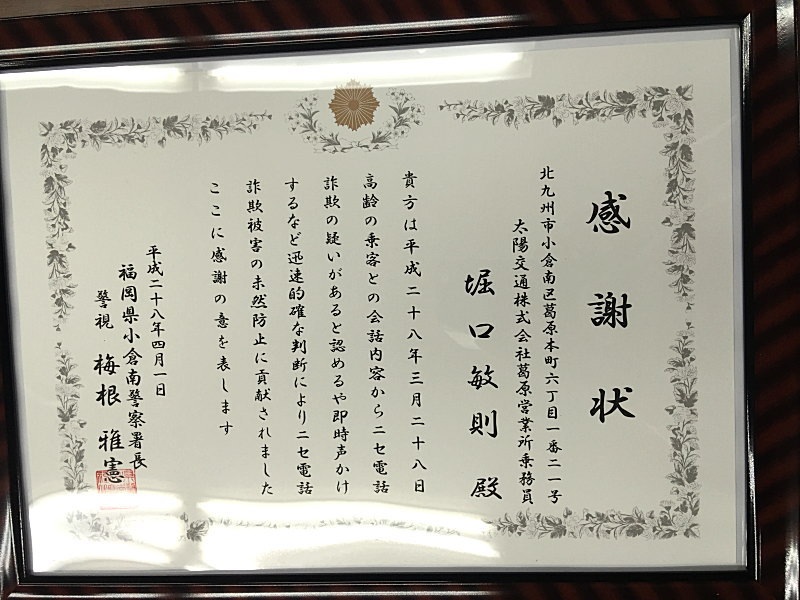 感謝状
北九州市小倉南区葛原本町六丁目一番二一号
太陽交通株式会社葛原営業所乗務員
堀口敏則 殿
貴方は平成二十八年三月二十八日
高齢の乗客との会話内容からニセ電話
詐欺の疑いがあると認めるや即時声かけ
するなど迅速的確な判断によりニセ電話
詐欺被害の未然防止に貢献されました
ここに感謝の意を表します
平成二十八年四月一日
福岡県小倉南警察署長
警視 梅根雅憲